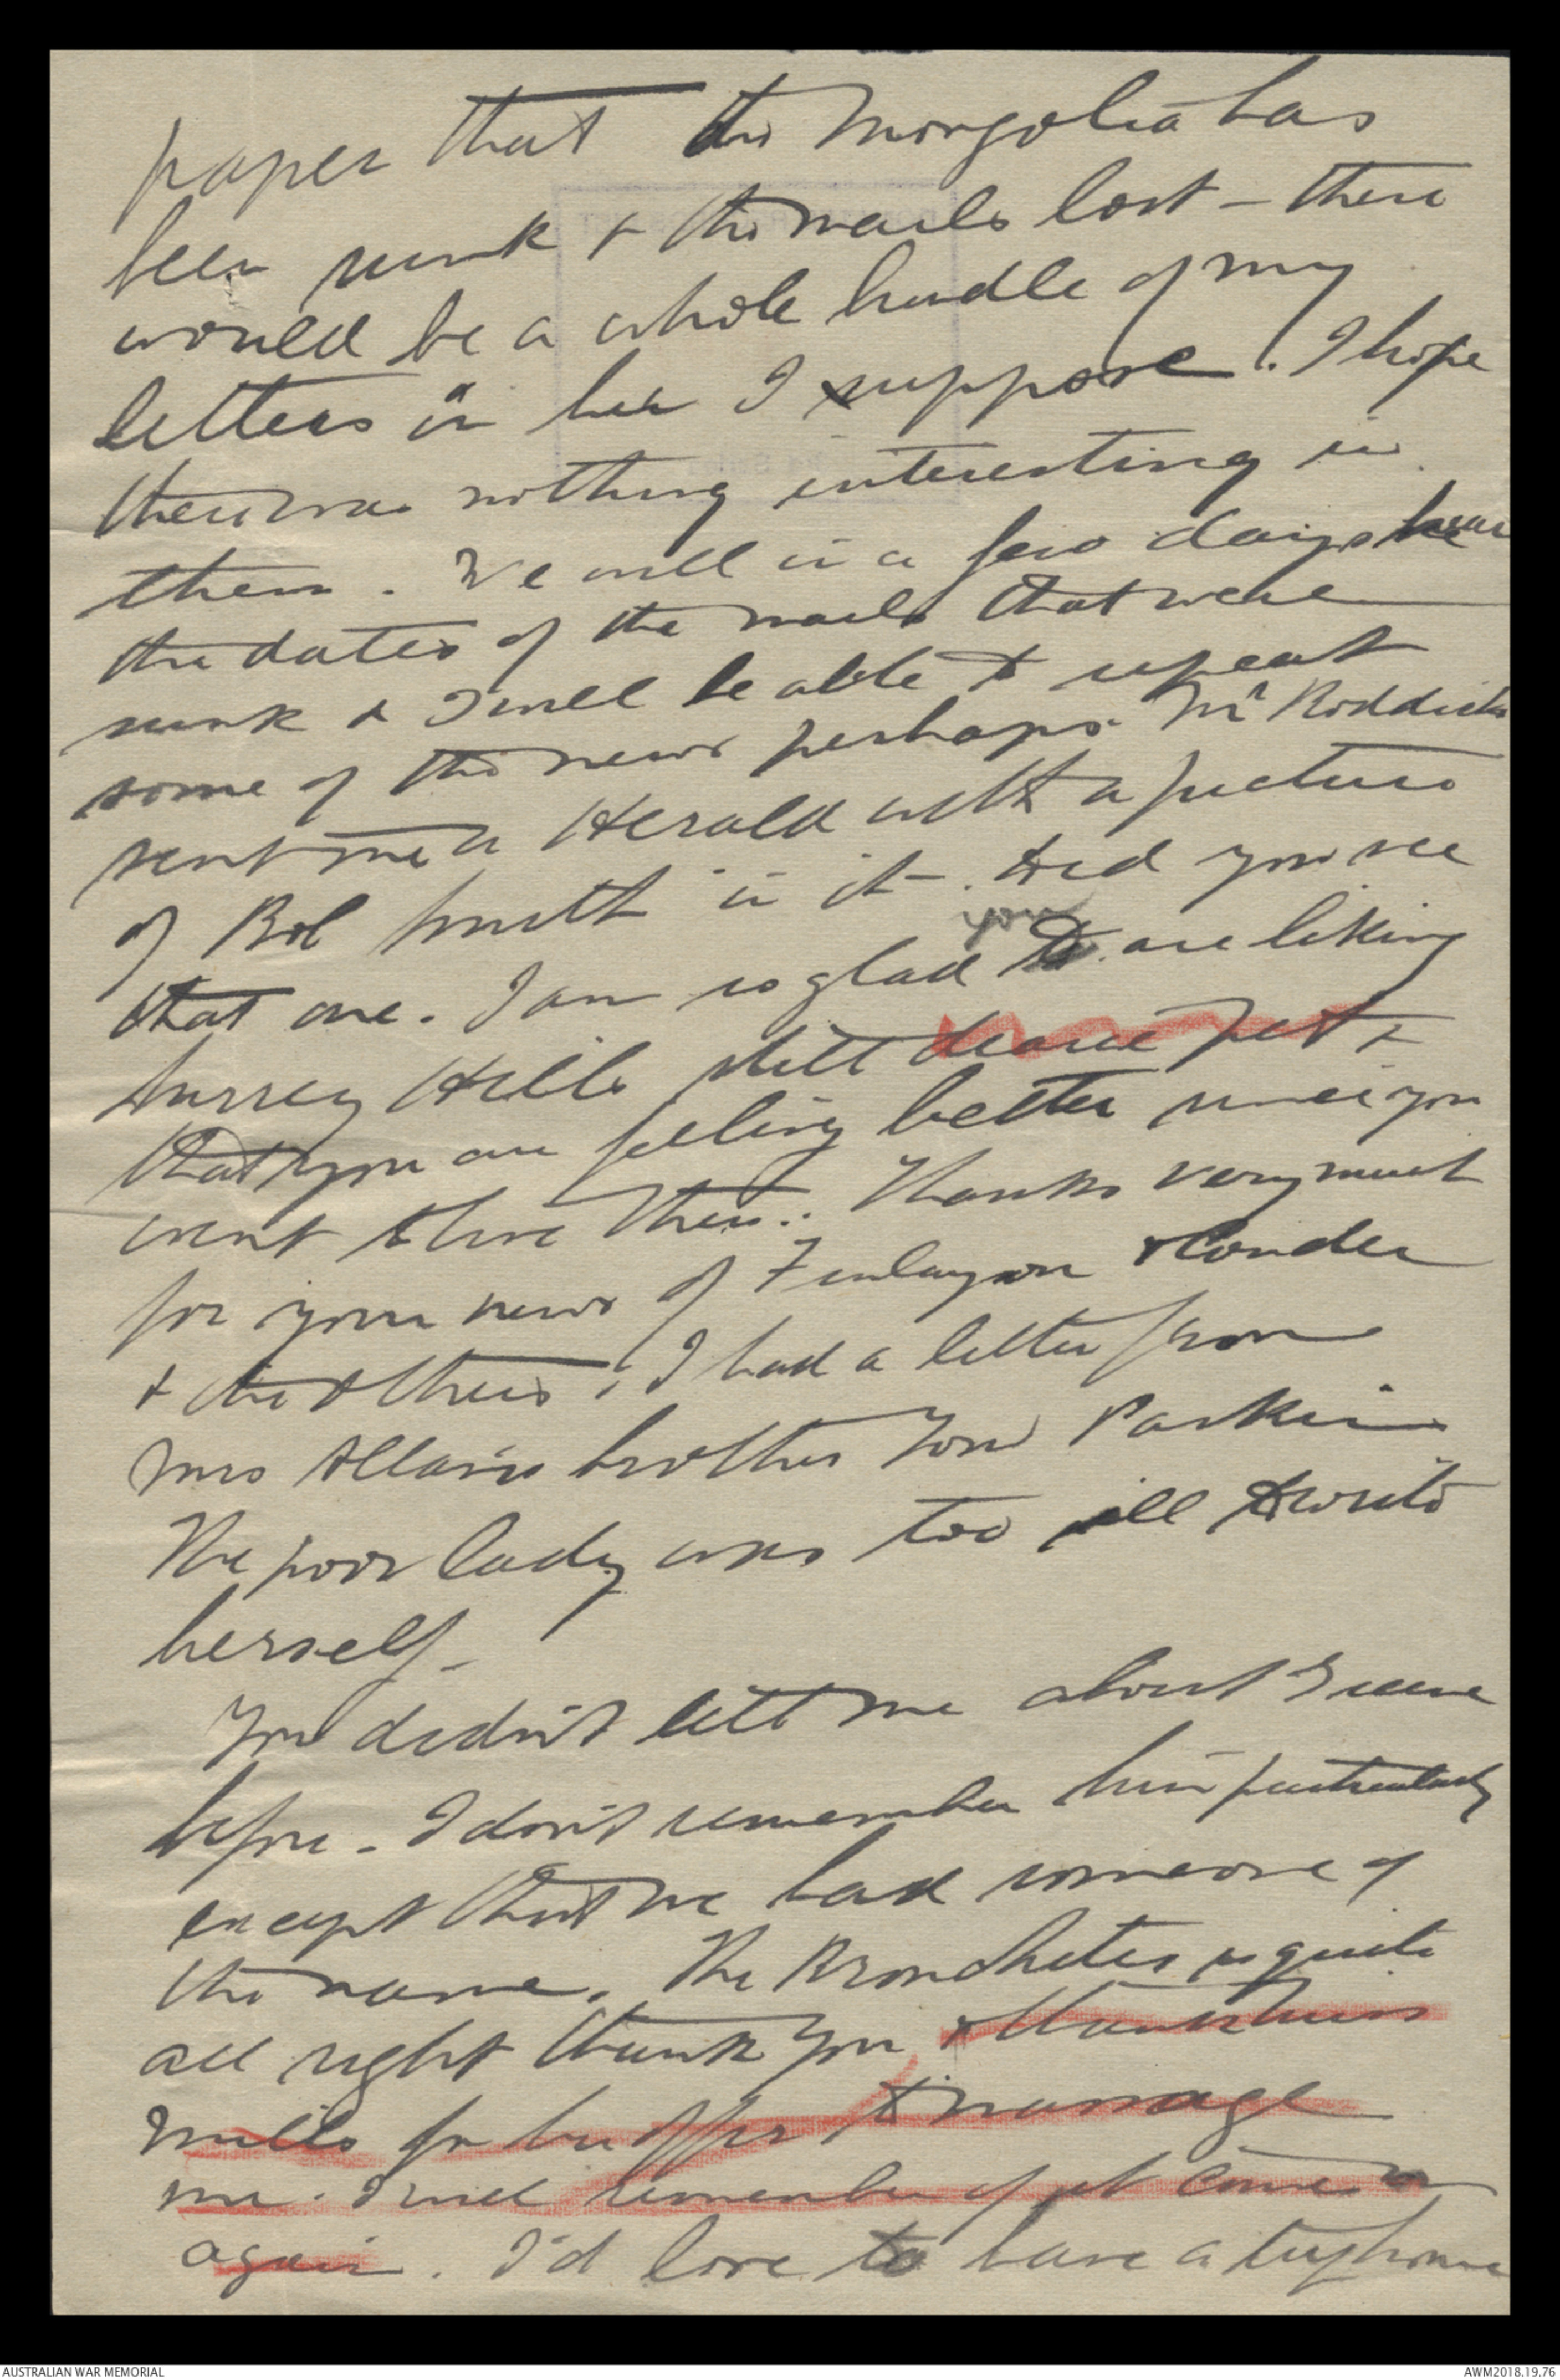 paper that the Mongolia has
been sunk & the mails lost – there
would be a whole bundle of my
letters in her I suppose. I hope
there was nothing interesting in
them. We will in a few days hear
the dates of the mails that were
sunk & I will be able to repeat
some of the news perhaps. Mr Roddick
sent me a Herald with a picture
of Bob Smith in it. Did you see
you
that one. I am so glad are liking
Surrey Hills still dearie pet &
that you are feeling better since you
went to live there. Thanks very much
for your news of Finlayson & Conder
& the others. I had a letter from
Mrs Allan's brother Tom Parkin
The poor lady was too ill to write
herself.
You didn't tell me about
before. I don't remember him particularly
except that we had someone of
the name. The Bronchitis is quite
all right thank you & thank
Mills for her offer to massage
me. I will remember if it comes on
again. I'd love to have a trip home
AUSTRALIAN WAR MEMORIAL
AWM2018.19.79